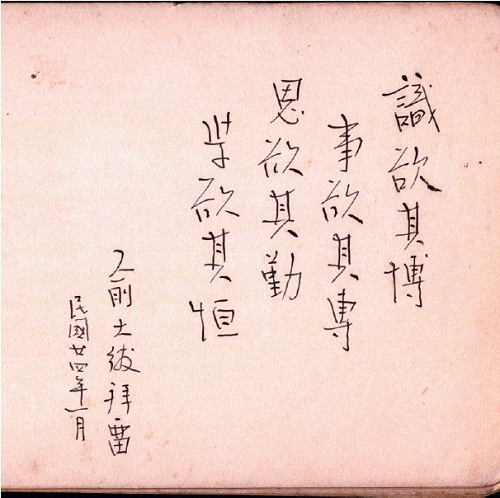 識欲其博
事欲其專
思欲其勤
学欲其恒
前士紱拜畱
民國廿四年一月